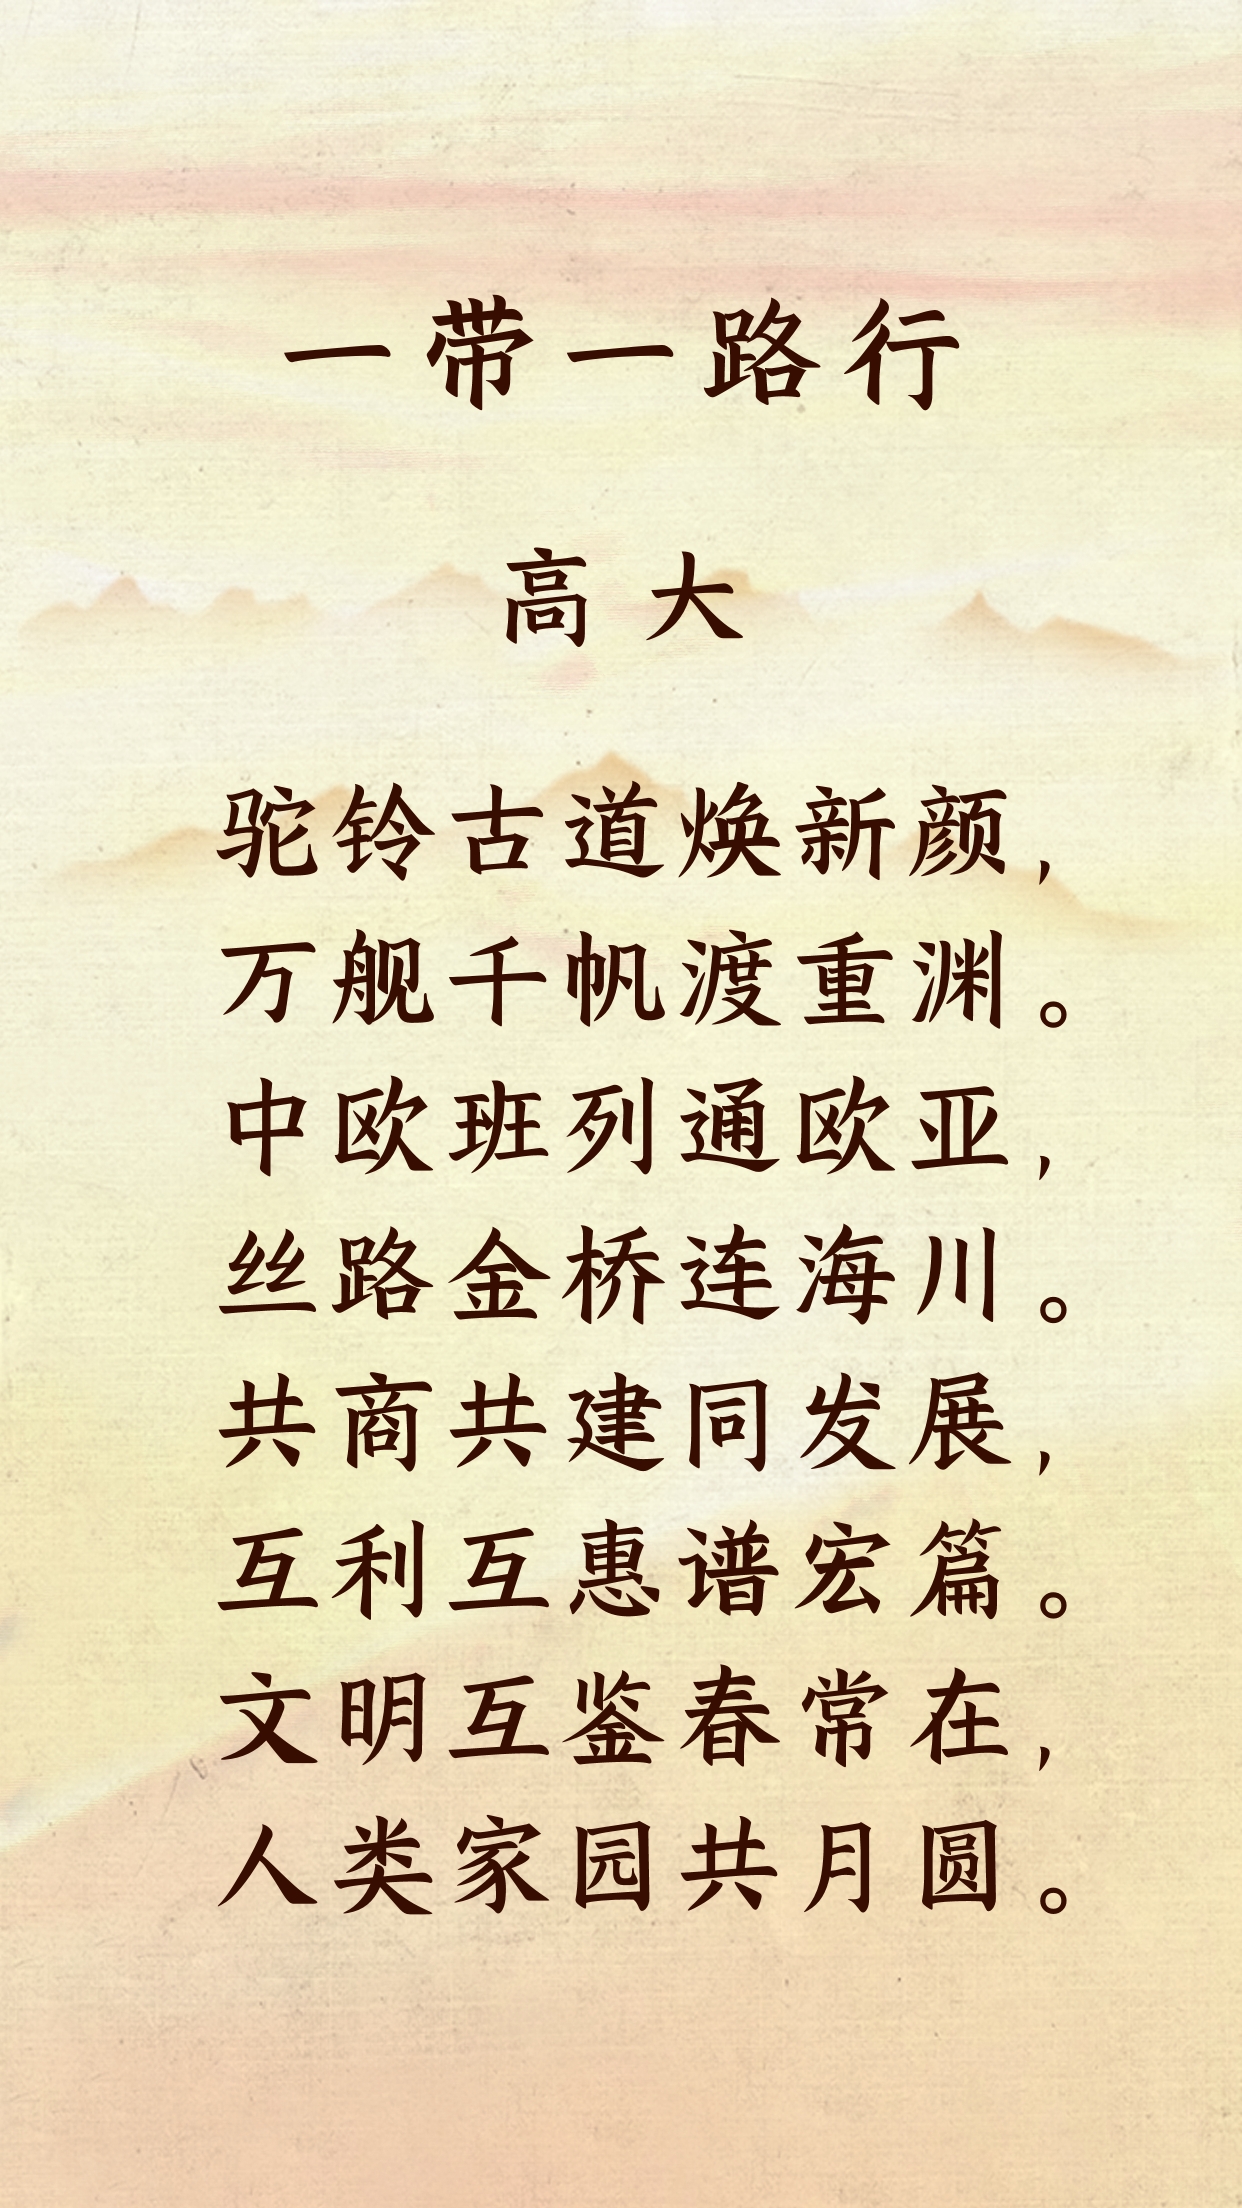 一带一路行
高大
驼铃古道焕新颜，
万舰千帆渡重渊。
中欧班列通欧亚，
丝路金桥连海川。
共商共建同发展，
互利互惠谱宏篇。
文明互鉴春常在，
人类家园共月圆。